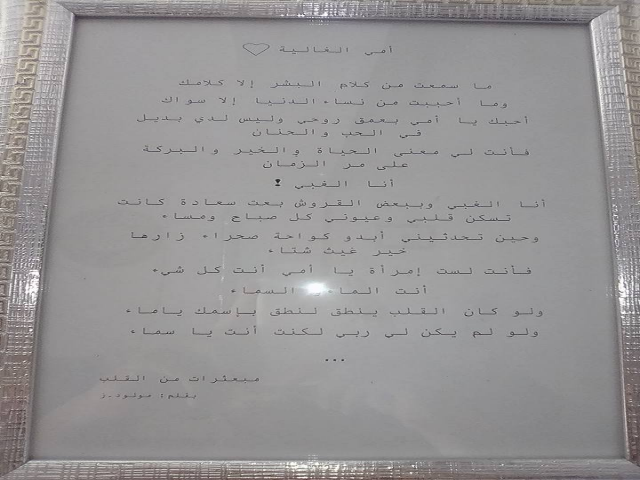 أمي الغالية ♡
ما سمعت من كلام البشر إلا كلامك
وما أحببت من نساء الدنيا إلا سواك
أحبك يا أمي بعمق روحي وليس لدي بديل
في الحب والحنان
فأنت لي معنى الحياة والخير والبركة
على مر الزمان
أنا الغبي !
أنا الغبي وببعض القروش بعت سعادة كانت
تسكن قلبي وعيوني كل صباح ومساء
وحين تحدثيني أبدو كواحة صحراء زارها
خير غيث شتاء
فأنت لست إمرأة يا أمي أنت كل شيء
أنت الماء و السماء
ولو كان القلب ينطق لنطق بإسمك ياماء
ولو لم يكن لي ربي لكنت أنت يا سماء
...
مبعثرات من القلب
بقلم: مولود.ز